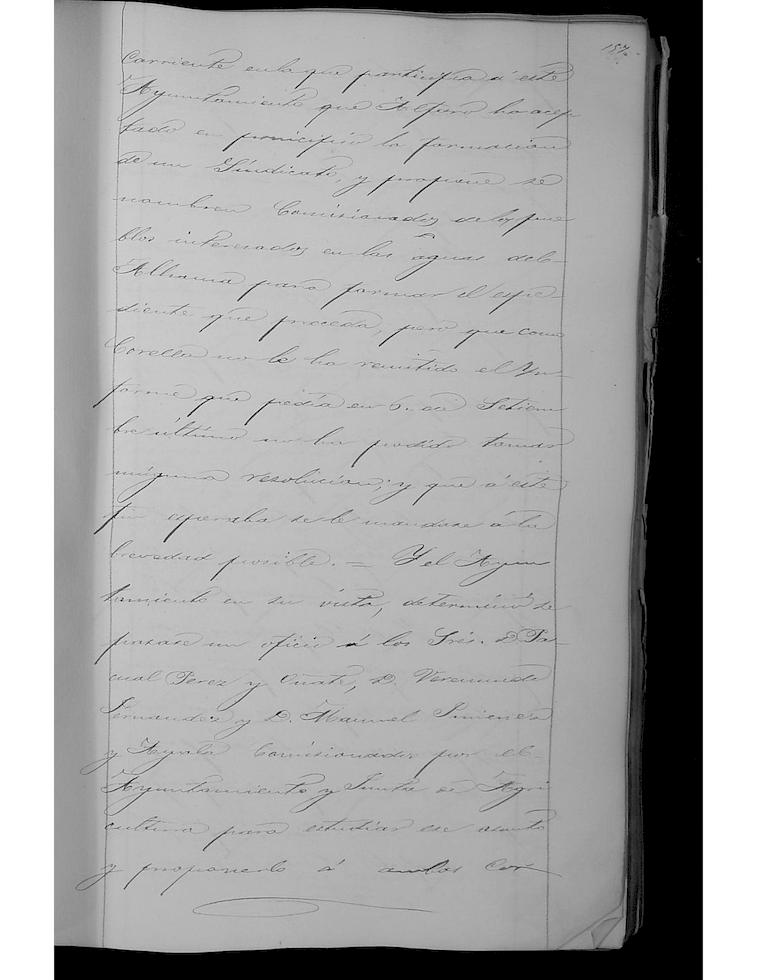 187
Corriente en la que participa á este
Ayuntamiento que Alfaro ha acep
tado en principio la formacion
de un Sindicato, y propone se
nombren Comisionados de los pue
blos interesados en las aguas del
Alhama para formar el espe-
diente que proceda, pero que como
Corella no le ha remitido el Yn-
forme que pedia en 6. de Setiem
bre último no ha podido tomar
ninguna resolucion; y que á este
fin esperaba se le mandase á la
brevedad posible. = Y el Ayun
tamiento en su vista, determinó se
pasase un oficio á los Srés. D. Pas-
cual Perez y Oñate, D. Veremundo
Fernandez y D. Manuel Jimenez
y Ayala Comisionados por el
Ayuntamiento y Junta de Agri
cultura para estudiar ese asunto
y proponerlo á ambas Cor